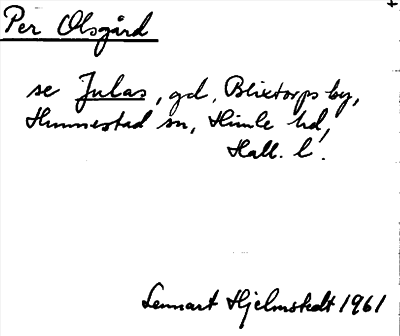 Per Olsgård
se Julas, gd, Blixtorps by,
Hunnestad sn, Himle hd,
Hall. l.
Lennart Hjelmstedt 1961